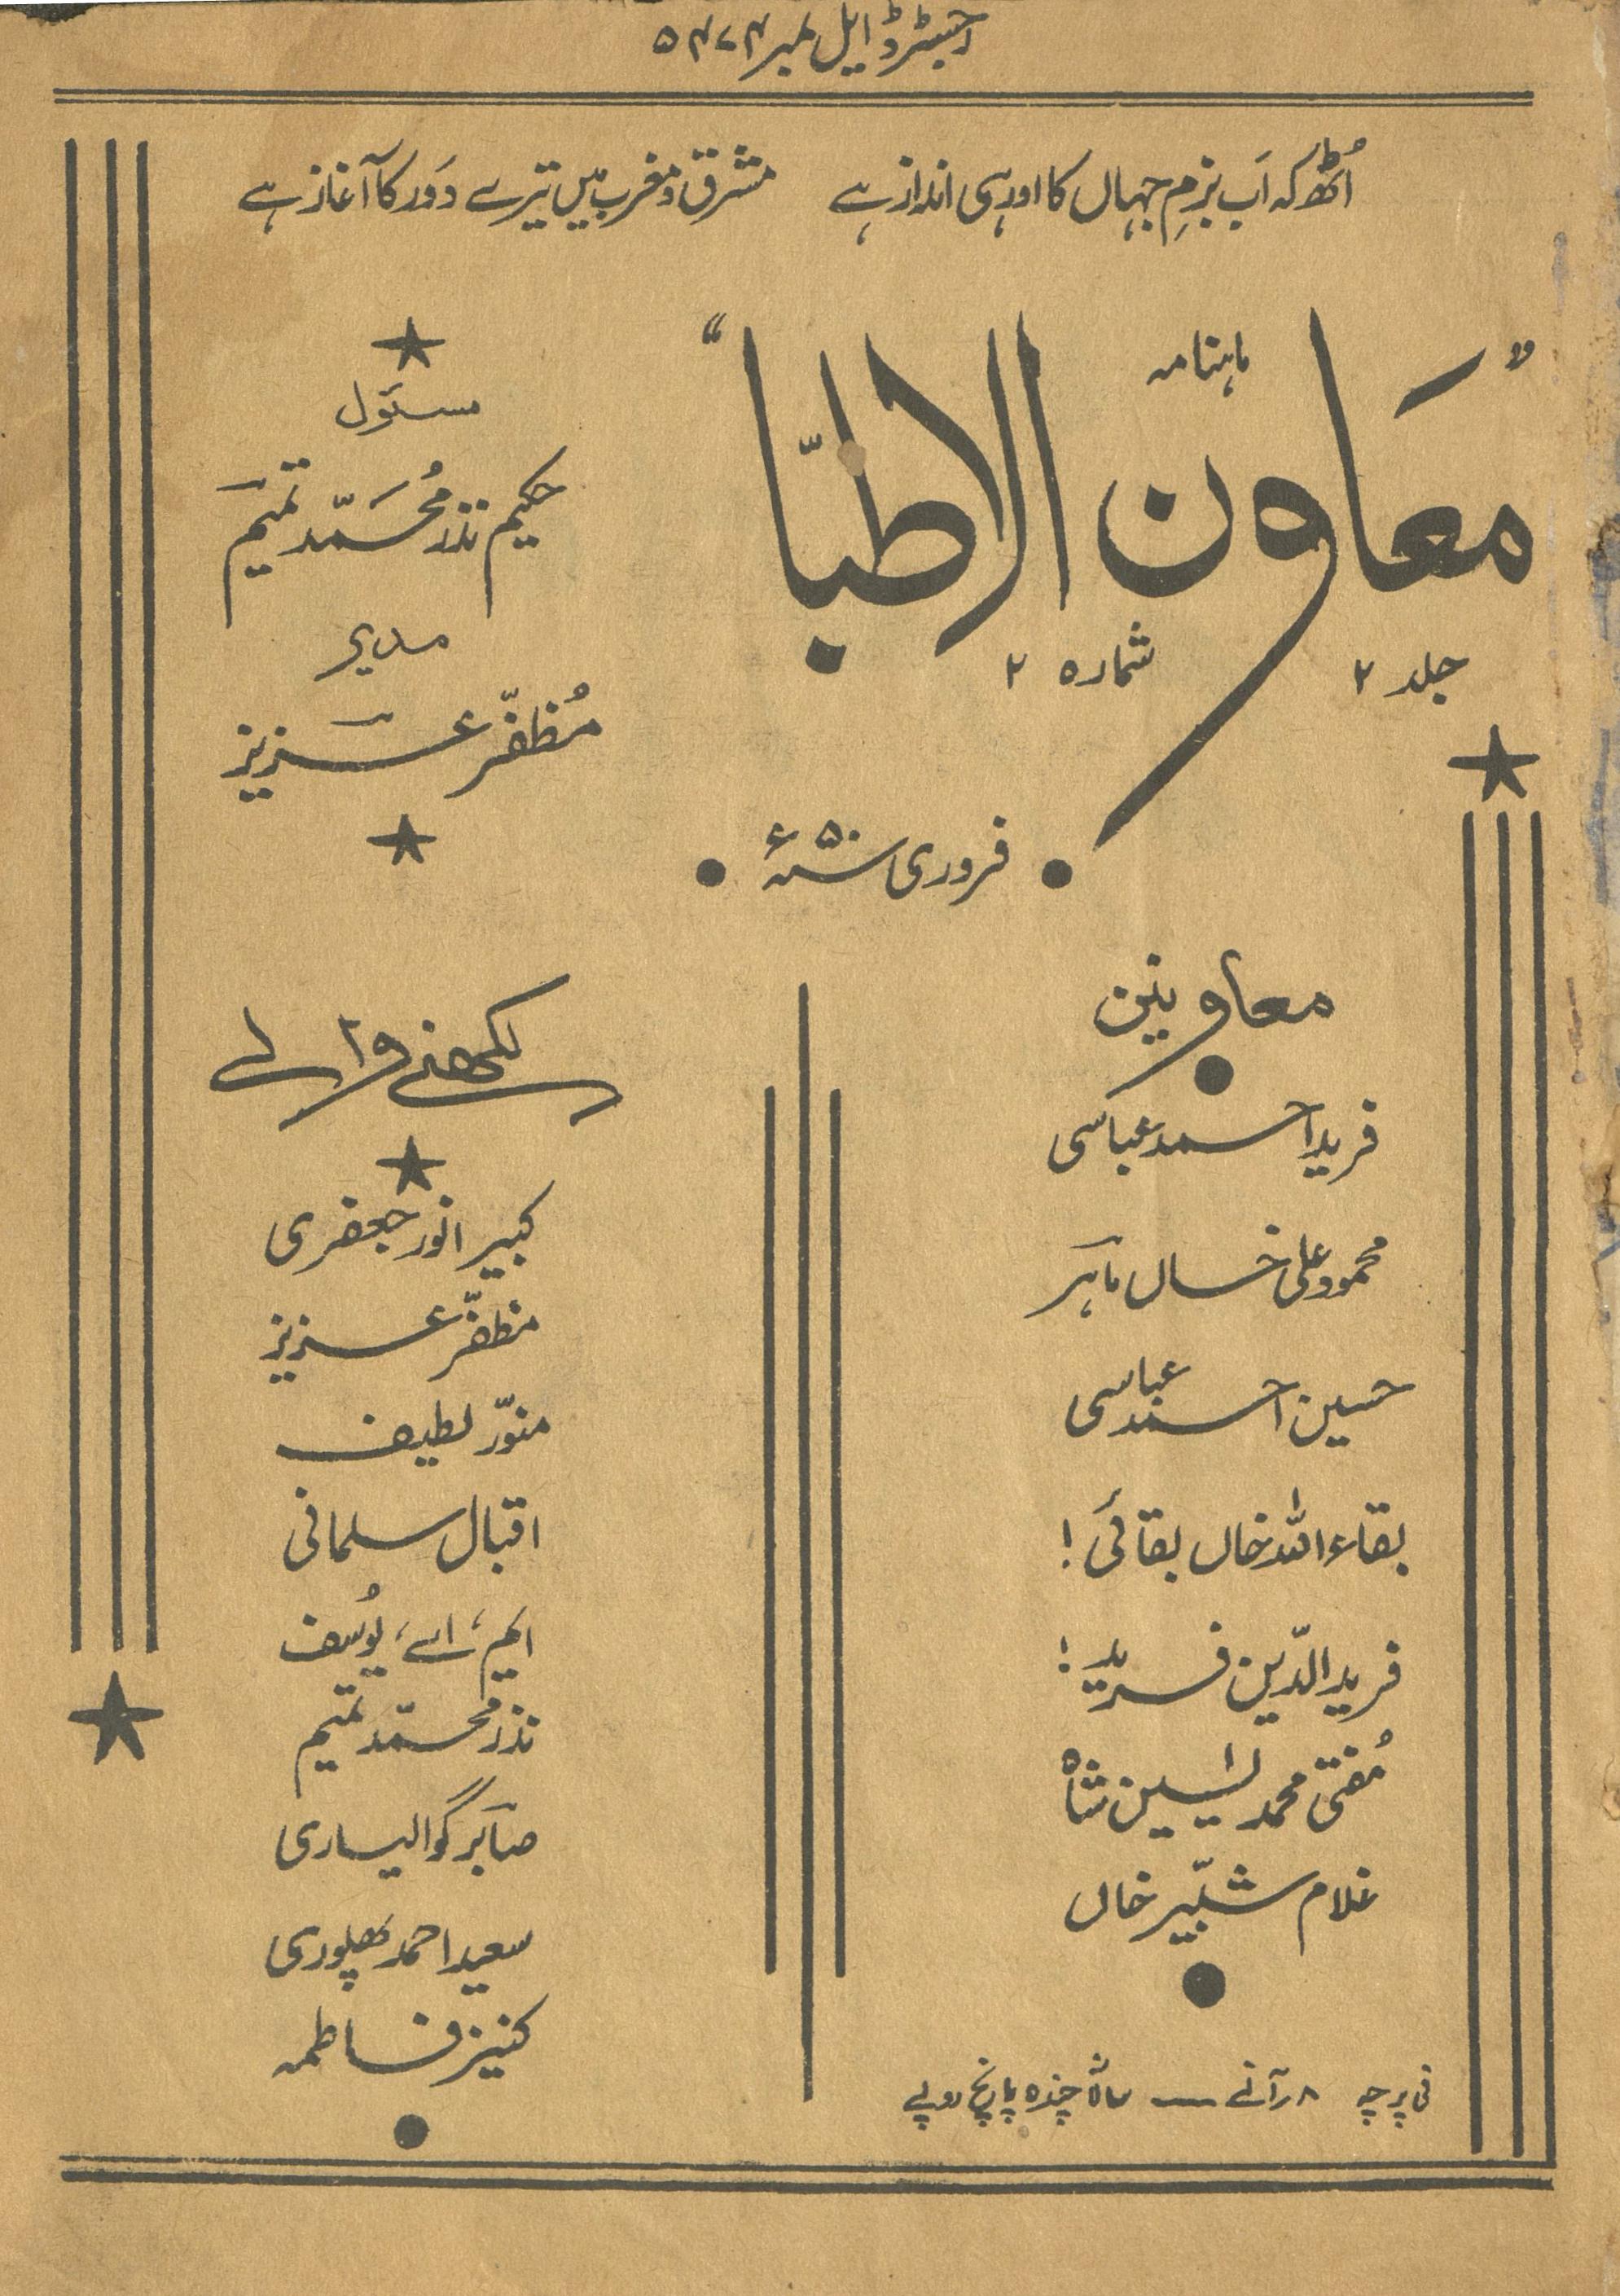 رجسٹرڈ ایل نمبر ۵۴۷۴
اُٹھ کہ اَب بزمِ جہاں کا اور ہی انداز ہے مشرق و مغرب میں تیرے دَور کا آغاز ہے
ماہنامہ
”مَعَاون الاطبّا“
جلد ۲ شمارہ ۲
فروری ۵۰ سنہ ء
مسئول
حکیم نذر مُحَمّد تمیمؔ
مدیر
مُظفّر عزیزؔ
معاونین
فرید احمد عباسی
محمود علی خاں ماہرؔ
حسین احمد عباسی
بقاء اللہ خاں بقائی !
فرید الدّین فرید !
مُفتی محمد یٰسین شاہ
غلام شبّیر خاں
فی پرچہ ۸ر آنے — سالانہ چندہ پانچ روپے
لکھنے والے
کبیر انور جعفری
مظفّر عزیز
منوّر لطیف
اقبال سلمانی
ایم، اے، یُوسف
نذر محمّد تمیم
صابرؔ گوالیاری
سعید احمد پھلپوری
کنیز فاطمہ